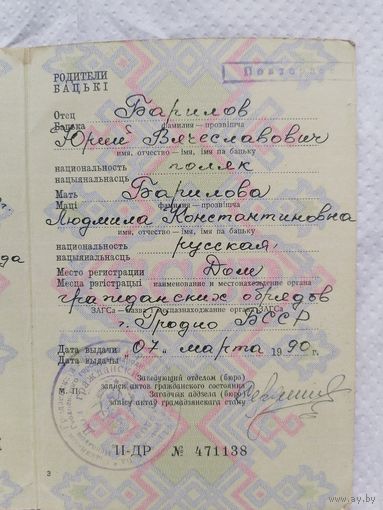 Повторное
РОДИТЕЛИ
БАЦЬКІ
Отец Барилов
Бацька фамилия – прозвішча
Юрий Вячеславович
имя, отчество – імя, імя па бацьку
национальность поляк
нацыянальнасць
Мать Барилова
Маці фамилия – прозвішча
Людмила Константиновна
имя, отчество – імя, імя па бацьку
национальность русская
нацыянальнасць
Место регистрации Дом
Месца рэгістрацыі наименование и местонахождение органа
гражданских обрядов
ЗАГСа – назва і месцазнаходжанне органа ЗАГСа
г. Гродно БССР
Дата выдачи „07„ марта 1990 г.
Дата выдачы
Заведующий отделом (бюро)
М. П. записи актов гражданского состояния
Загадчык аддзела (бюро)
запісу актаў грамадзянскага стану
II-ДР № 471138
3
г.
ода
ay.by